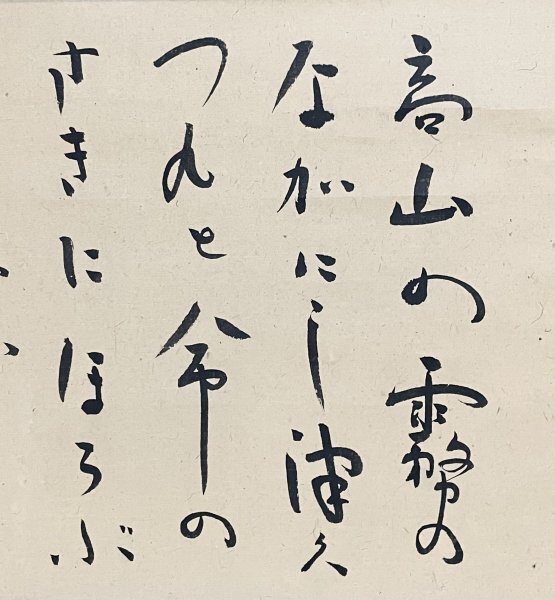 高山の霧の
ながにし津久
つと命の
さきにほろぶ